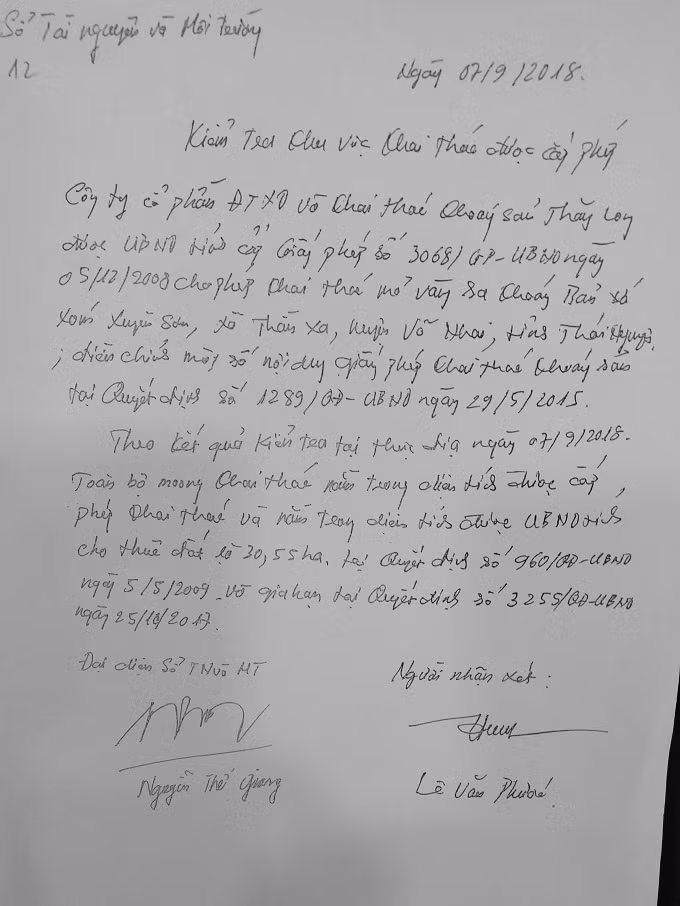 Sở Tài nguyên và Môi trường
12
Ngày 07/9/2018.
Kiểm tra Khu vực Khai thác được cấp phép
Công ty cổ phần ĐTXD và Khai thác Khoáng sản Thăng Long
được UBND tỉnh cấp Giấy phép số 3068/GP-UBND ngày
05/12/2008 cho phép Khai thác mỏ vàng sa Khoáng Bản Ná
xóm Xuyên Sơn, xã Thần Xa, huyện Võ Nhai, tỉnh Thái Nguyên,
; điều chỉnh một số nội dung giấy phép Khai thác Khoáng sản
tại Quyết định số 1289/QĐ-UBND ngày 29/5/2015.
Theo Kết quả Kiểm tra tại thực địa ngày 07/9/2018.
Toàn bộ moong Khai thác nằm trong diện tích được cấp
phép Khai thác và nằm trong diện tích được UBND tỉnh
cho thuê đất là 30,55ha. tại Quyết định số 960/QĐ-UBND
ngày 5/5/2009 và gia hạn tại Quyết định số 3255/QĐ-UBND
ngày 25/10/2017.
Đại diện Sở TN và MT
Người nhận xét:
Nguyễn Thế Giang
Lê Văn Phước